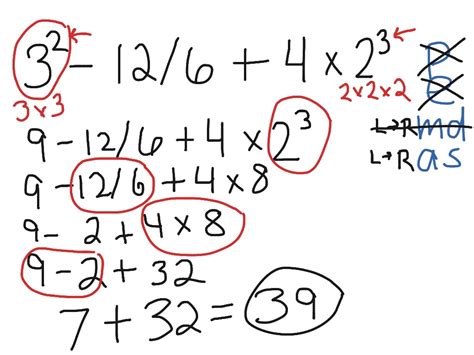 3² - 12/6 + 4 × 2³
3×3
2×2×2
9 - 12/6 + 4 × 2³
9 - 12/6 + 4 × 8
9 - 2 + 4 × 8
9 - 2 + 32
7 + 32 = 39
P
E
L→R md
L→R as